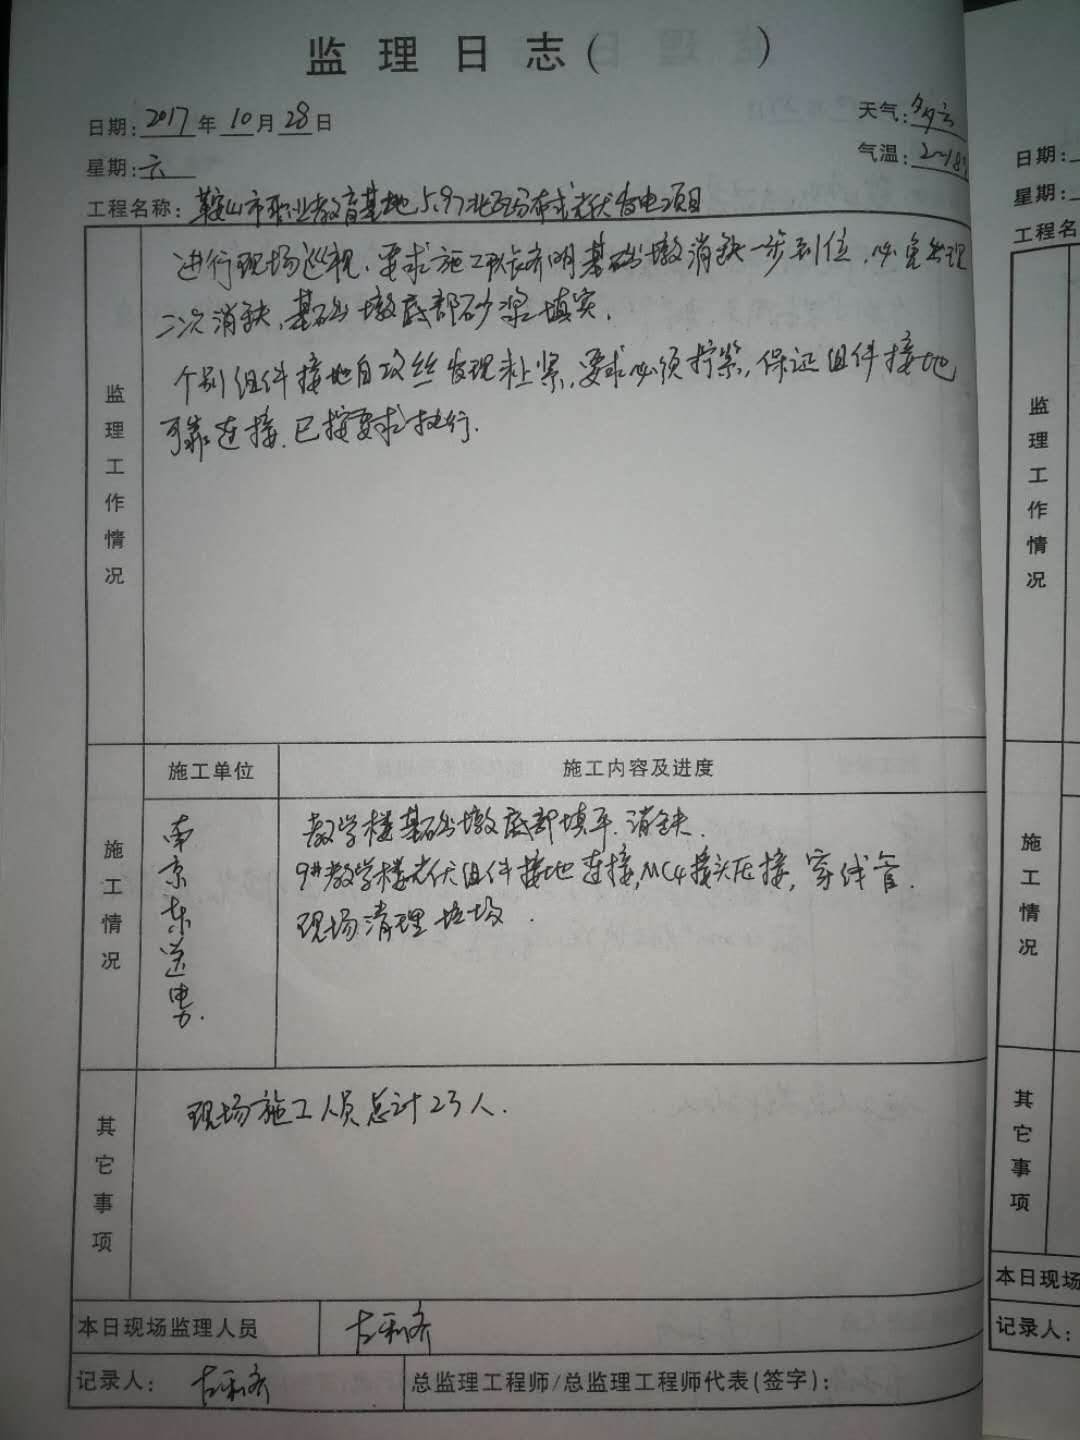 监理日志( )
日期: 2017 年 10 月 28 日
天气: 多云
星期: 六
气温: 2~18
工程名称: 鞍山市职业教育基地5.97兆瓦分布式光伏发电项目
监理工作情况
进行现场巡视，要求施工队长齐明基础墩消缺一步到位，
二次消缺，基础墩底部砂浆填实．
个别组件接地自攻丝发现未上紧，要求必须拧紧，保证组件接地
可靠连接．已按要求执行．
施工单位
施工内容及进度
施工情况
南京东送电力．
教学楼基础墩底部填平．消缺．
9#教学楼光伏组件接地连接，MC4接头压接，穿线管．
现场清理垃圾．
其它事项
现场施工人员总计23人．
本日现场监理人员
记录人:
总监理工程师/总监理工程师代表(签字):
日期:
星期:
工程名
监理工作情况
施工情况
其它事项
本日现场
记录人: